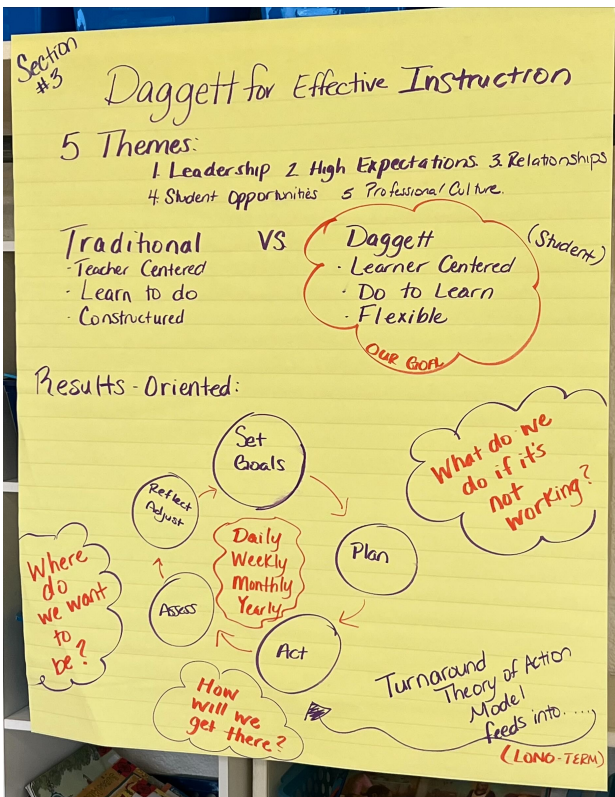 Section
#3
Daggett for Effective Instruction
5 Themes:
1. Leadership 2 High Expectations. 3. Relationships
4. Student Opportunities 5 Professional Culture.
Traditional VS Daggett (Student)
- Teacher Centered
- Learn to do
- Constructured
· Learner Centered
· Do to Learn
· Flexible
OUR GOAL
Results-Oriented:
Set
Goals
Plan
Act
Assess
Reflect
Adjust
Daily
Weekly
Monthly
Yearly
What do we
do if it's
not
working?
Where
do
we want
to
be?
How
will we
get there?
Turnaround
Theory of Action
Model
feeds into.....
(LONG-TERM)